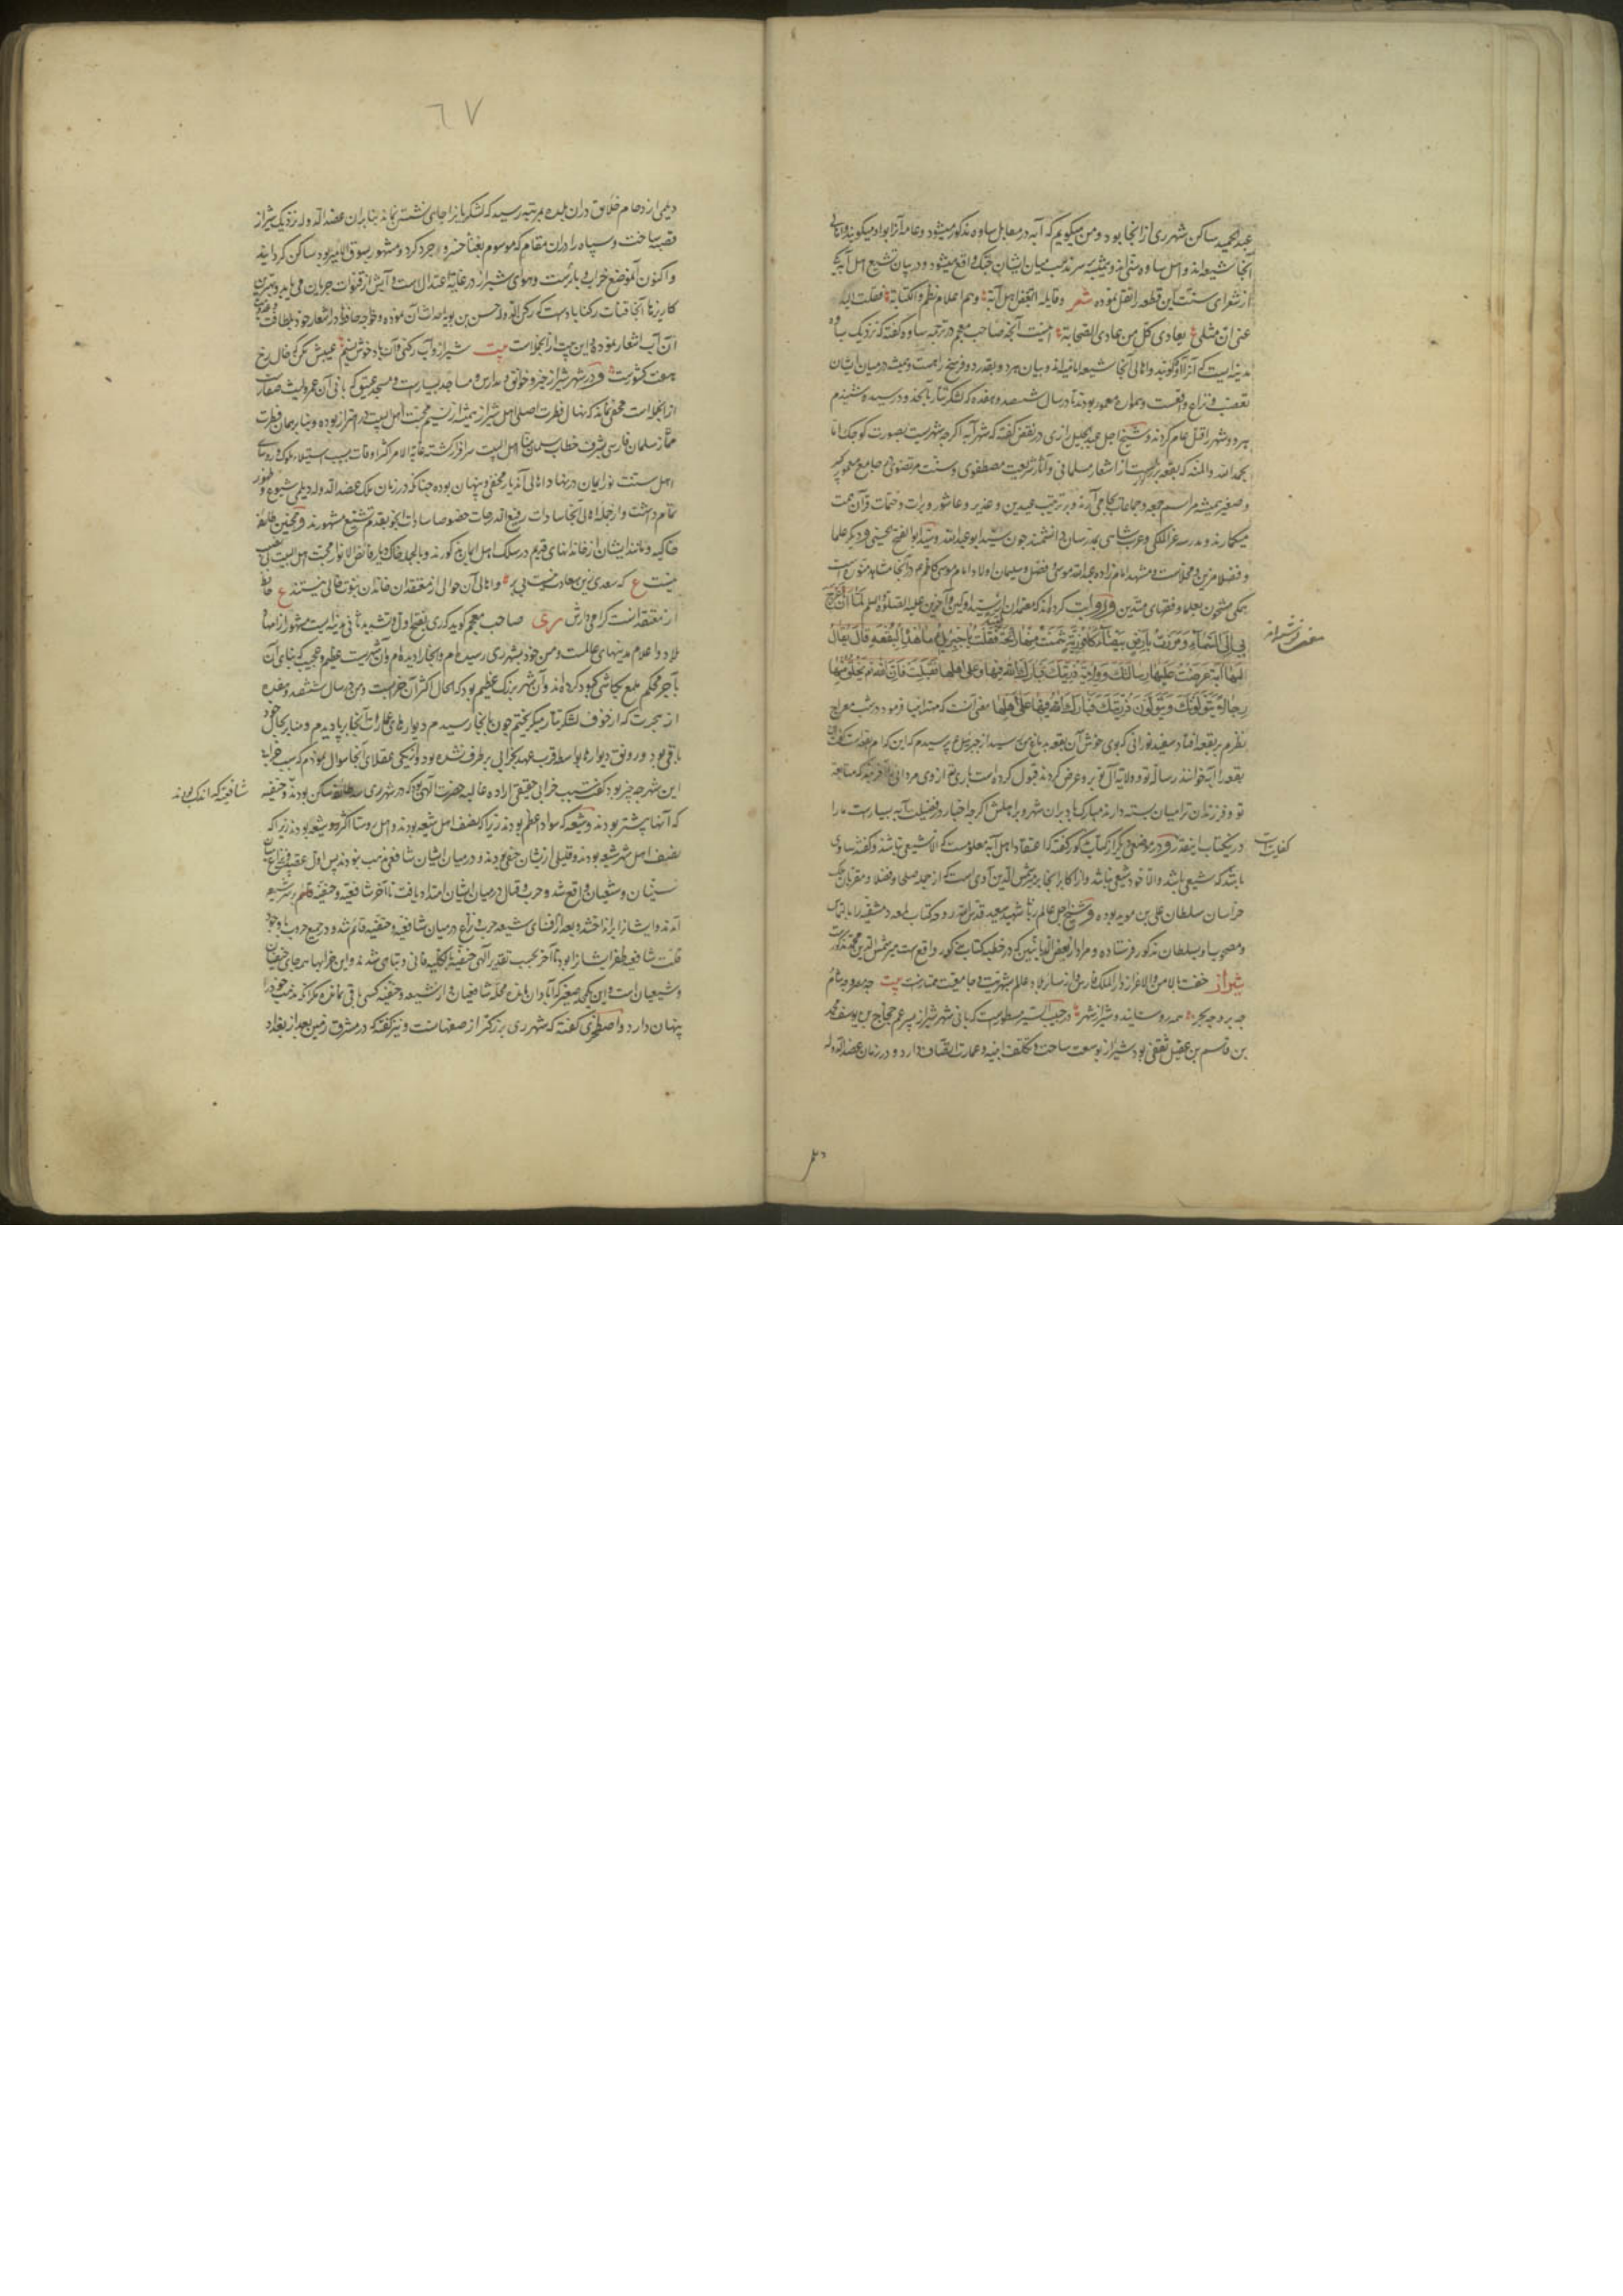 عبدالحمید ساکن شهر ری از آنجا بود و من میگویم که آبه در مقابل ساوه مذکور میشود و عامه آنرا آوه میگویند و اهالی
آنجا شیعه اند و اهل ساوه سنی اند و همیشه بر سر مذهب میان ایشان جنگ واقع میشود و در بیان تشیع اهل آبه یکی
از شعرای سنت این قطعه را نقل نموده شعر وقایلة اتبغض اهل آبة وهم اعلام نظم والکتابة فقلت الیک
عنی ان مثلی یعادی کل من عادی الصحابة اینست آنچه صاحب معجم در ترجمه ساوه گفته که نزدیک ساوه
مدینه ایست که آنرا آوه گویند و اهالی آنجا شیعه امامیه اند و میان هر دو بقدر دو فرسخ راهست و همیشه در میان ایشان
تعصب و نزاع واقعست و همواره معمور بودند تا در سال ششصد و هفده که لشکر تتار بآنحدود رسیدند
هر دو شهر را قتل عام کردند و شیخ اجل عبدالجلیل رازی در نقض گفته که شهر آبه اگرچه شهریست بصورت کوچک اما
بحمدالله والمنه که بقعه بزرگیست از اشعار مسلمانی و آثار شریعت مصطفوی و سنت مرتضوی در جامع معمور کبیر
و صغیر همیشه مراسم جمعه و جماعات بجای آرند و بر ترتیب عیدین و غدیر و عاشورا و برات و ختمات قرآن همت
میگمارند و مدرسه عزالملکی و عرب شاهی بمدرسان دانشمند چون سید ابو عبدالله و سید ابوالفتح حسینی و دیگر علما
و فضلا مزین و محلاست و مشهد امام زاده عبدالله موسی و فضل و سلیمان اولاد امام موسی کاظم ع در آنجا مشاهد منور است
همگی مشحون بعلما و فقهای متدین و روایت کرده اند که معتمدان از سید اولین و آخرین علیه الصلوة والسلم لما ان عرج
بی الی السماء و مررت بارض بیضاء کافوریة شممت منها رائحة فقلت یا جبرئیل ما هذه البقعة قال یقال
لها آبة عرضت علیها رسالتک و ولایة ذریتک فبارک الله فیها وعلی اهلها فقبلت فان الله تع یخلق منها
رجالا یتولونک و یتولون ذریتک فبارک الله فیها و علی اهلها معنی آنست که مهتر انبیا فرمود در شب معراج
نظرم بر بقعه افتاد سفید نورانی که بوی خوش آن بقعه بدماغ من رسید از جبرئیل ع پرسیدم که این کدام بقعه است گفت این
بقعه را آبه خوانند رسالت تو و ولایة آل تو برو عرض کردند قبول کرده است باری تع از وی مردانی آفریند که متابعة
تو و فرزندان ترا میان بسته دارند مبارک باد بر آن شهر و بر اهلش اگرچه اخبار در فضیلت آبه بسیارست ما را
در یکتاب اینقدر و در موضعی دیگر از کتاب مذکور گفته که اعتقاد اهل آبه معلومست که الا شیعی نباشد و گفته ساوی
باشد که شیعی باشد والا خود شیعی نباشد و از اکابر آنجا میر شمس الدین آوی است که از جمله صلحا و فضلا و مقربان ملک
خراسان سلطان علی بن موید بوده و شیخ اجل عالم ربانی شهید سعید قدس سره کتاب لمعه دمشقیه را بالتماس
و مصحوب او بسلطان مذکور فرستاده و مراد از بعض الدیانین که در خطبه کتاب مذکور واقع است میر شمس الدین محمد مذکورست
شیراز حفت بالامن والاعزاز دارالملک فارس و از سایر بلاد عالم بشرف و جامعیت ممتازست بیت چه مصر و چه شام
چه بر و چه بحر همه روستایند و شیراز شهر در حبیب السیر مسطورست که بانی شهر شیراز پسر عم حجاج بن یوسف محمد
بن قاسم بن عقیل ثقفی بود شیراز بوسعت ساحت و تکلف ابنیه و عمارت اتصاف دارد و در زمان عضد الدوله
کفایت است
٦٧
دیلمی ازدحام خلایق در آن بلده بمرتبه رسید که لشکریانرا جای نشستن نماند بنابر آن عضدالدوله نزدیک شیراز
قصبه ساخت و سپاه را در آن مقام که موسوم بفنا خسرو جرد کرد و مشهور بسوق الامیر بود ساکن گردانید
و اکنون آنموضع خراب و بایرست و هوای شیراز در غایة اعتدال است و آبش از قنوات جریان می یابد و بهترین
کاریزها آنجا قنات رکناباد است که رکن الدوله حسن بن بویه احداث آن نموده و خواجه حافظ در اشعار خود بلطافت
آن آب اشعار نموده و این بیت از آنجملاست بیت شیراز و آب رکنی و آن باد خوش نسیم عیبش مکن که خال رخ
هفت کشورست و در شهر شیراز خیر و خوانق و مدارس و مساجد بسیارست و مسجد عتیق که بانی آن عمرو لیث صفارست
از آنجمله است مخفی نماند که نهال فطرت اصلی اهل شیراز همیشه از نسیم محبت اهل البیت در اهتزاز بوده و بنابر همان فطرت
ممتاز سلمان فارسی بشرف خطاب سلمان منا اهل البیت سرافراز گشته غایة الامر اکثر اوقات بسبب استیلاء ملوک
اهل سنت نور ایمان در نهاد اهالی آن دیار مخفی و پنهان بوده چنانکه در زمان ملک عضدالدوله دیلمی شیوع و ظهور
تمام داشت و از جمله اهالی آنجا سادات رفیع الدرجات خصوصا سادات انجو بقدم تشیع مشهورند و همچنین طایفه
خاکیه و مانند ایشان از خاندانهای قدیم در سلک اهل ایمان مذکورند و بالجمله خاک دیار فایض الانوار محبت اهل البیت بی نصیب
نیست ع که سعدی ازین سعادت نیست بی بر و اهالی آن حوالی از معتقدان خاندان نبوت خالی نیستند ع حافظ
از معتقدانست گرامی دارش ری صاحب معجم گوید که ری بفتح اول و تشدید ثانی مدینه ایست مشهور از امهات
بلاد و اعلام مدینهای عالمست و من خود بشهر ری رسیده ام و آنجا را دیده ام و آن شهریست عظیم و عجیب که بنای آن
بآجر محکم ملمع بکاشی کبود کرده اند و آن شهر بزرگ عظیم بود که الحال اکثر آن خرابست و من در سال ششصد و هفده
از هجرت که از خوف لشکر تتار میگریختم چون بآنجا رسیدم دیوارهای عمارات آنجا بر پا دیدم و منابر بحال خود
باقی بود و رونق دیوارها بواسطه قرب عهد بخرابی برطرف نشده بود و از یکی عقلای آنجا سوال نمودم که سبب خرابی
این شهر چه چیز بود گفت سبب خرابی حقیقی اراده عالیه حضرت آلهی بود که در شهر ری سه طایفه ساکن بودند و حنفیه
که آنها بیشتر بودند و شیعه که سواد اعظم بودند زیرا که نصف اهل شیعه بودند و اهل روستا اکثر شیعه بودند زیرا که
نصف اهل شهر شیعه بودند و قلیلی از ایشان حنفی بودند و در میان ایشان شافعی مذهب نبودند پس اول عصبیة و نزاع میان
سنیان و شیعیان واقع شد و حرب و قتال در میان ایشان امتداد یافت تا آخر شافعیه و حنفیه بر شیعه
آمدند و ایشانرا برانداختند و بعد از فنای شیعه حرب و نزاع در میان شافعیه و حنفیه قائم شد و در جمیع حروب با وجود
قلت شافعیه ظفر ایشانرا بود تا آخر بحسب تقدیر آلهی حنفیه بالکلیه فانی و تباهی شدند و این خرابها همه جای حنفیان
و شیعیان است و این یکمحله صغیر که آبادان مانده محله شافعیان و از شیعه و حنفیه کسی باقی نمانده مگر آنکه مذهب خود را
پنهان دارد و اصطخری گفته که شهر ری بزرگتر از صفهانست و نیز گفته که در مشرق زمین بعد از بغداد
شافعیه که اندک بودند